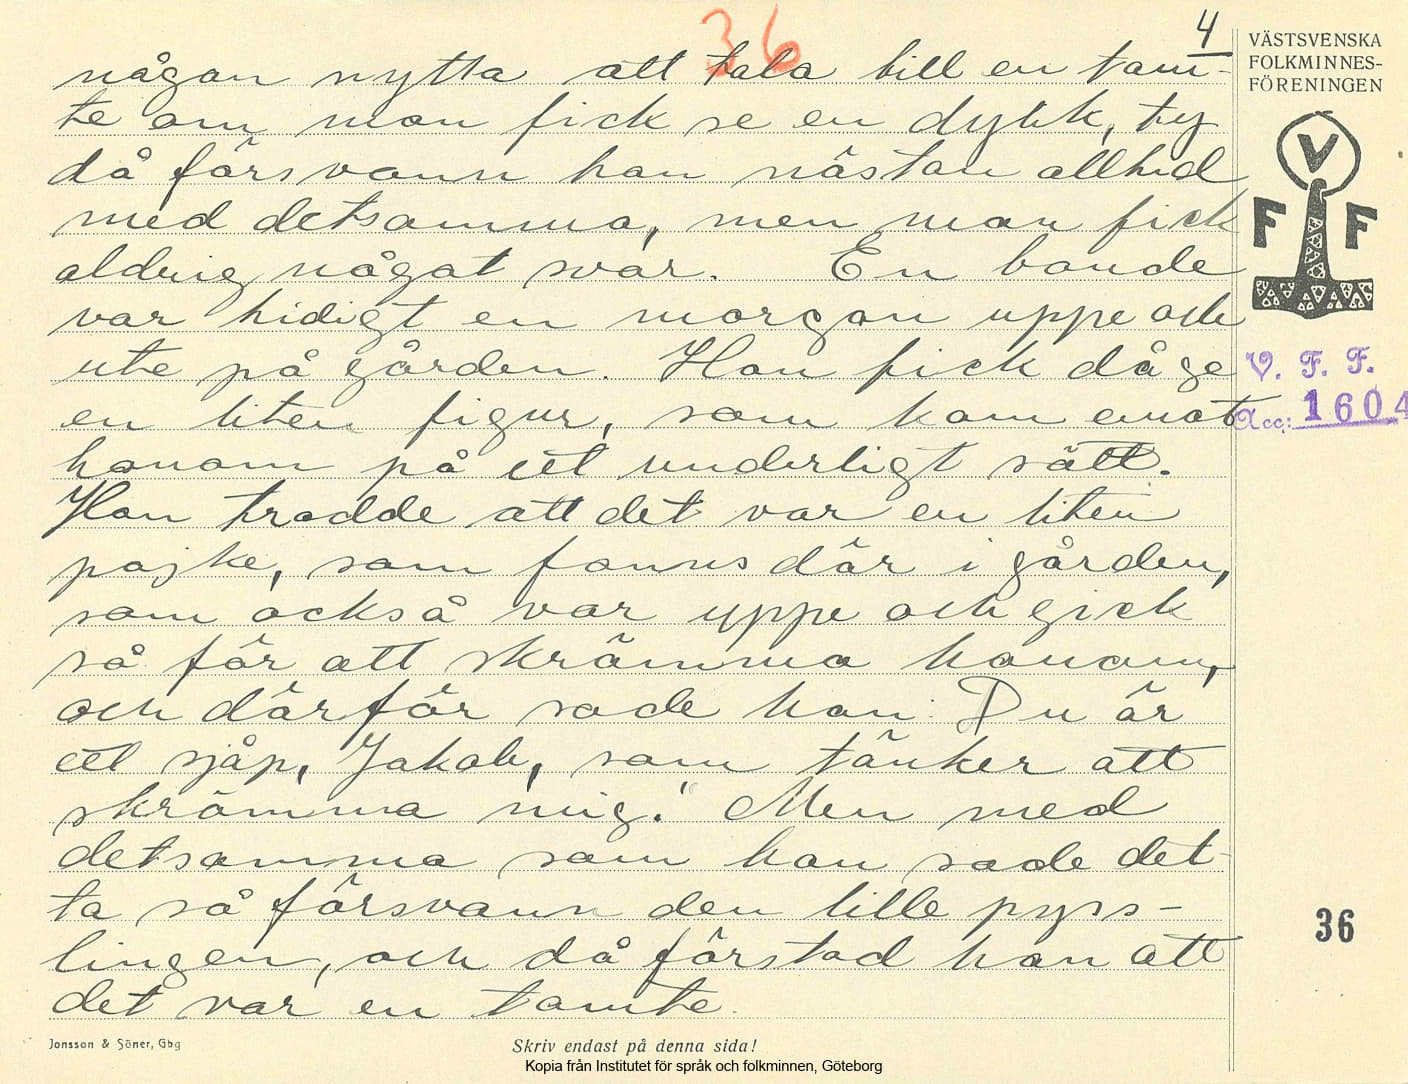 36
4
någon nytta att tala till en tom-
te om man fick se en dylik, ty
då försvann han nästan alltid
med detsamma, men man fick
aldrig något svar. En bonde
var tidigt en morgon uppe och
ute på gården. Han fick då se
en liten figur, som kom emot
honom på ett underligt sätt.
Han trodde att det var en liten
pojke, som fanns där i gården,
som också var uppe och gick
så för att skrämma honom,
och därför sade han: Du är
ett sjåp, Jakob, som tänker att
skrämma mig." Men med
detsamma som han sade det-
ta så försvann den lille pyss-
lingen, och då förstod han att
det var en tomte.
VÄSTSVENSKA
FOLKMINNES-
FÖRENINGEN
V
F F
V. F. F.
Acc: 1604
36
Jonsson & Söner, Gbg
Skriv endast på denna sida!
Kopia från Institutet för språk och folkminnen, Göteborg